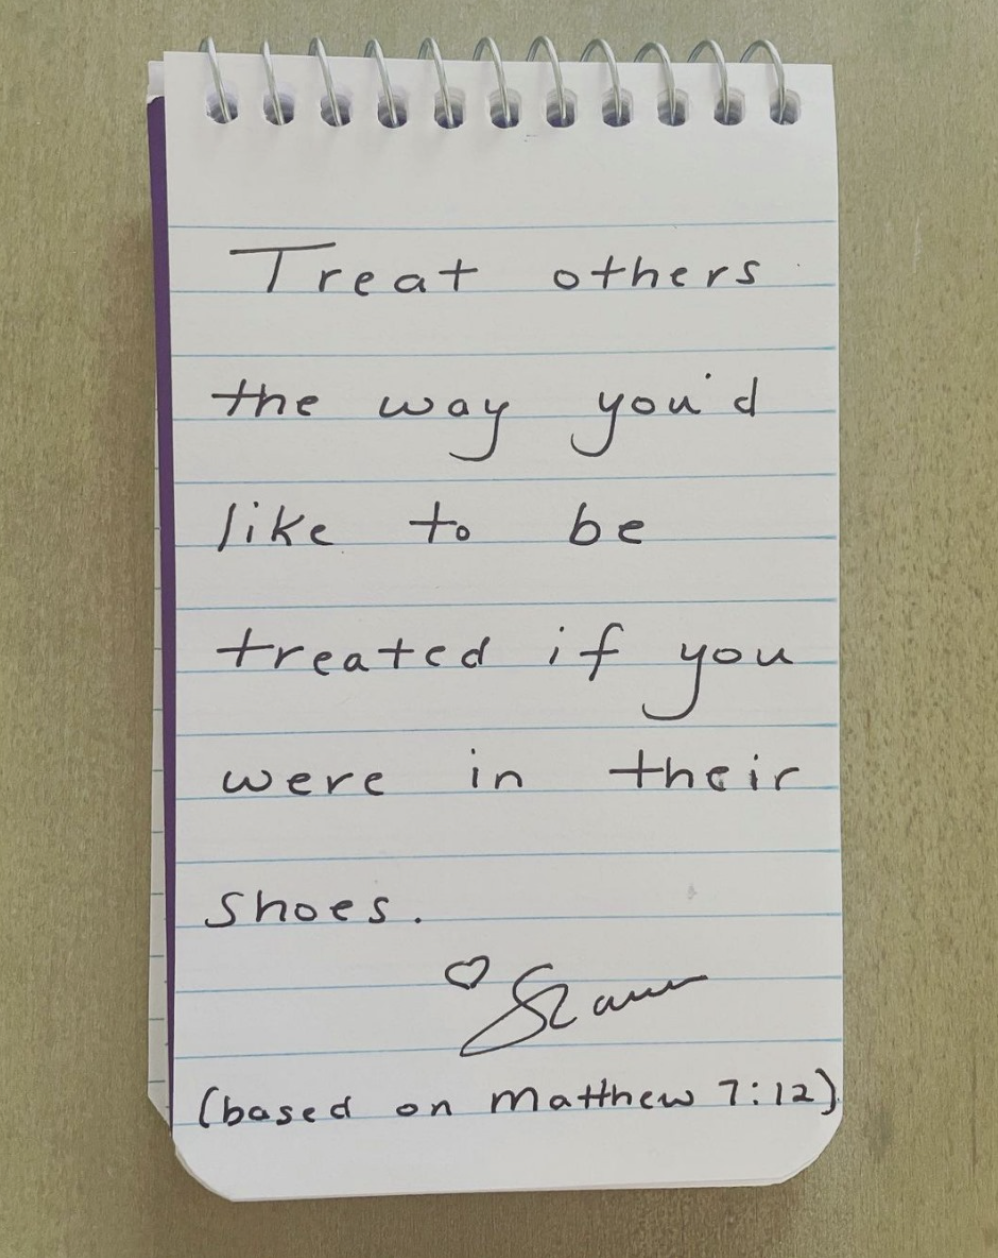 Treat others
the way you'd
like to be
treated if you
were in their
shoes.
(based on Matthew 7:12)